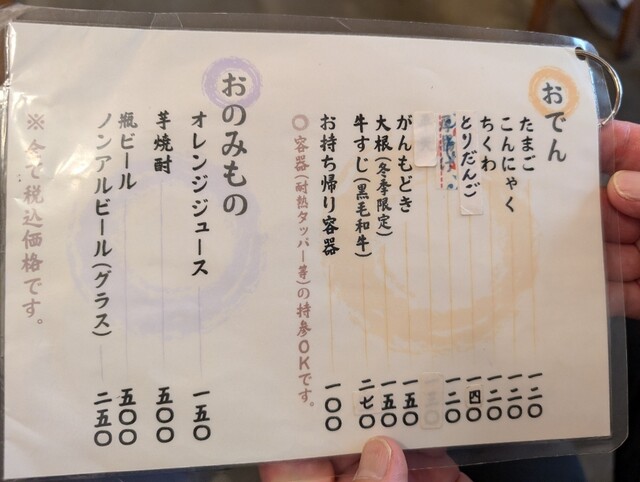 おでん
たまご 一二〇
こんにゃく 一二〇
ちくわ 一二〇
とりだんご 一四〇
一二〇
がんもどき 一五〇
大根(冬季限定) 一五〇
牛すじ(黒毛和牛) 二七〇
お持ち帰り容器 一〇〇
○容器(耐熱タッパー等)の持参OKです。
おのみもの
オレンジジュース 一五〇
芋焼酎 五〇〇
瓶ビール 五〇〇
ノンアルビール(グラス) 二五〇
※全て税込価格です。